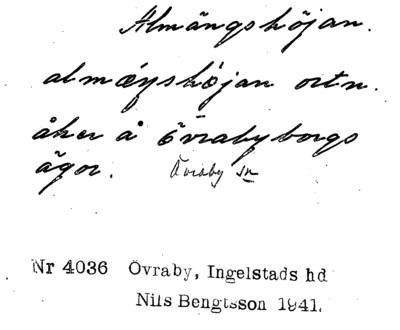 Almängshöjan.
almæŋshøjan ortn.
åker å Övrabyborgs
ägor. Övraby sn
Nr 4036 Övraby, Ingelstads hd
Nils Bengtsson 1941.